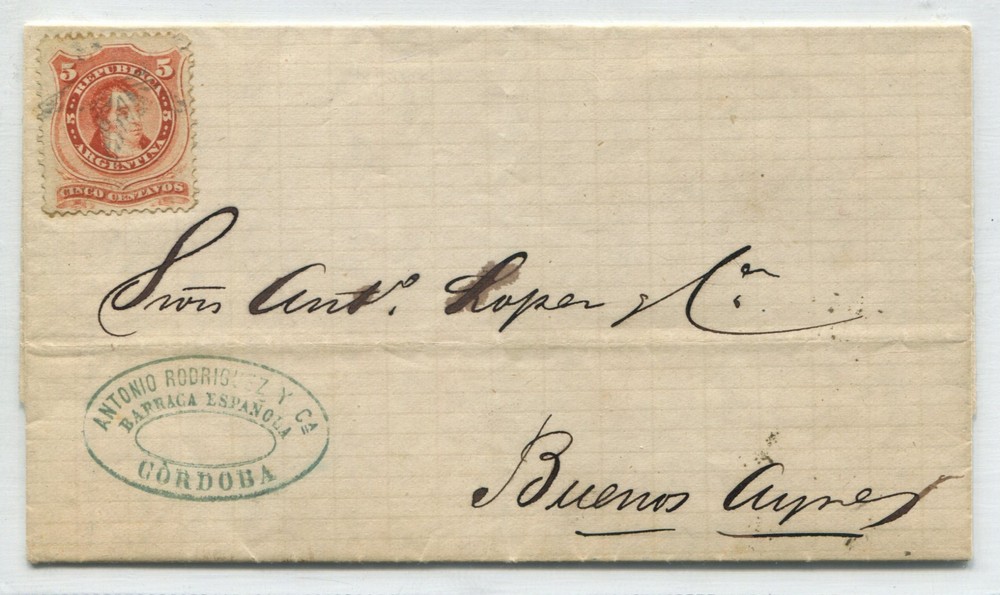 5 5
REPUBLICA
5 5
ARGENTINA
CINCO CENTAVOS
Antº. Lopez y Cª
ANTONIO RODRIGUEZ Y Cª
BARRACA ESPAÑOLA
CÓRDOBA
Buenos Ayres